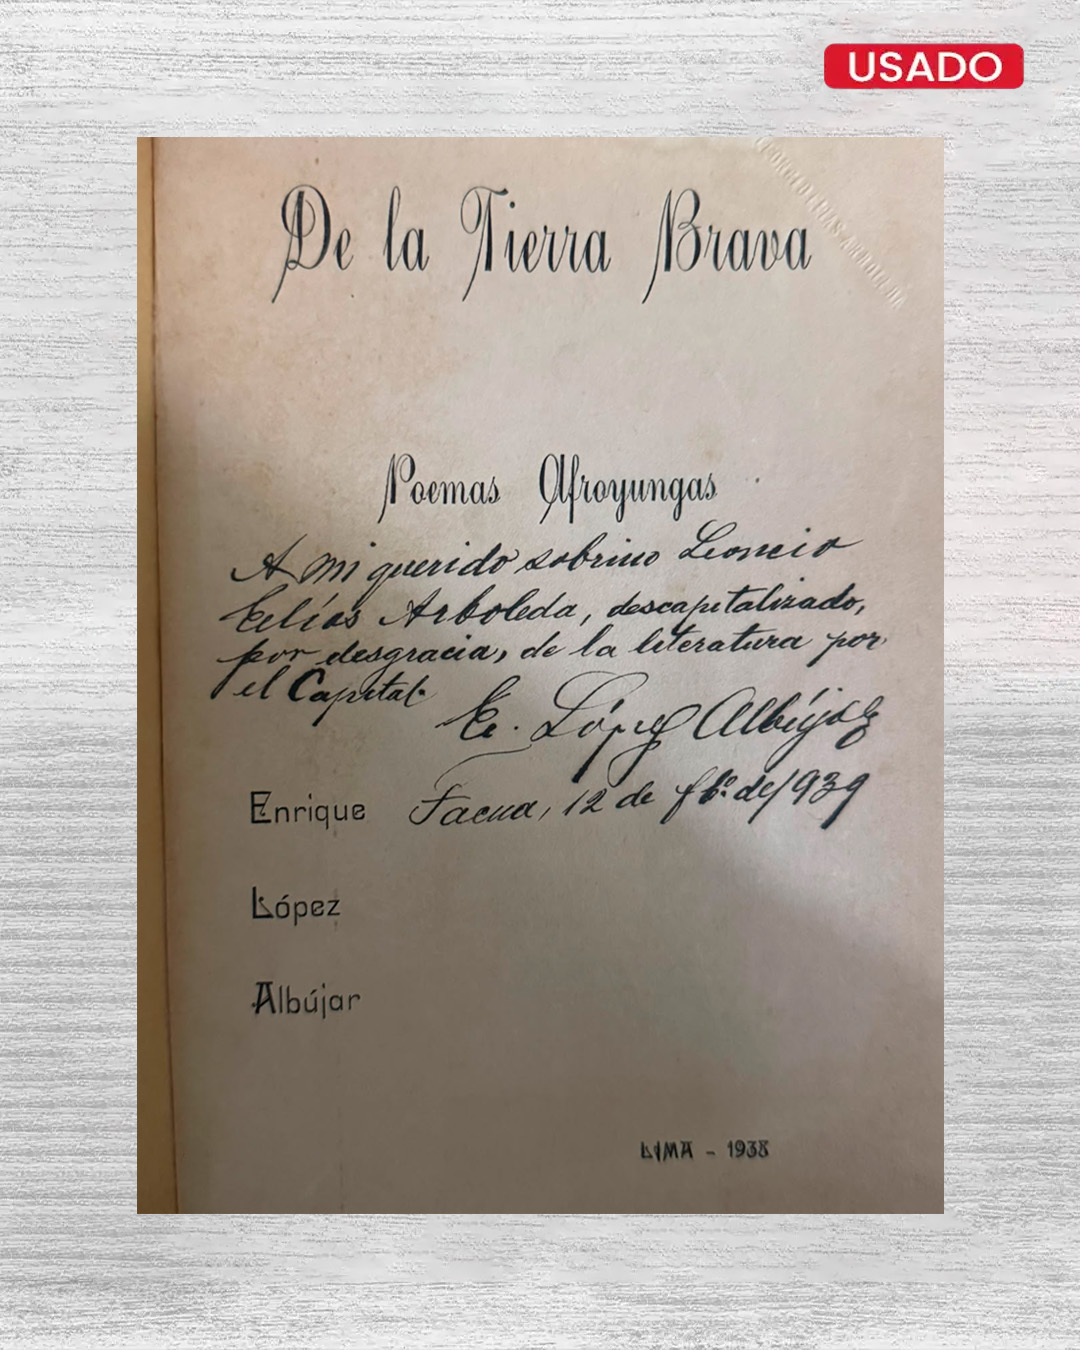 USADO
De la Tierra Brava
Poemas Afroyungas
A mi querido sobrino Leoncio
Elías Arboleda, descapitalizado,
por desgracia, de la literatura por
el Capital.
E. López Albújar
Enrique
Tacna, 12 de fbº. de/939
López
Albújar
LIMA - 1938